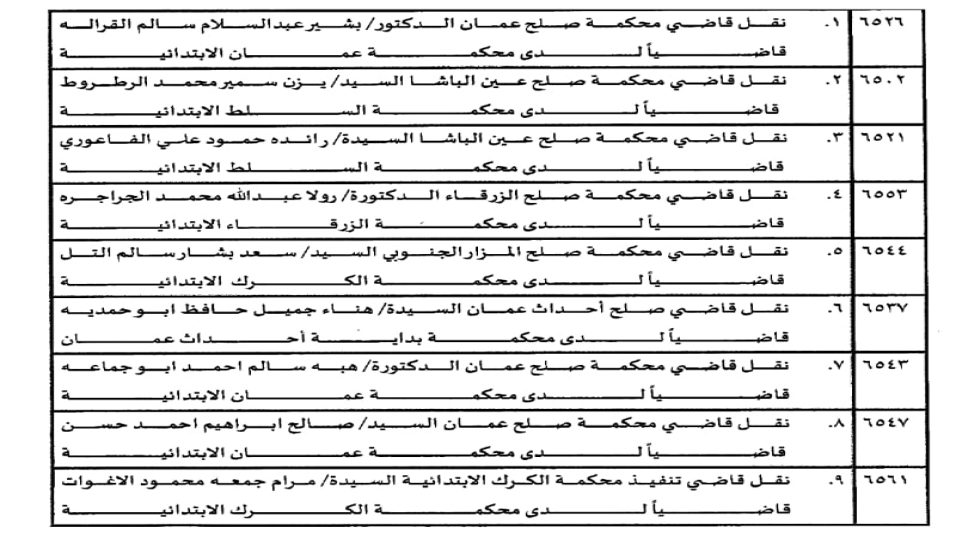 ٦٥٢٦ ١. نقل قاضي محكمة صلح عمان الدكتور/ بشير عبدالسلام سالم القراله
قاضياً لدى محكمة عمان الابتدائية
٦٥٠٢ ٢. نقل قاضي محكمة صلح عين الباشا السيد/ يزن سمير محمد الرطروط
قاضياً لدى محكمة السلط الابتدائية
٦٥٢١ ٣. نقل قاضي محكمة صلح عين الباشا السيدة/ رائده حمود علي الفاعوري
قاضياً لدى محكمة السلط الابتدائية
٦٥٥٣ ٤. نقل قاضي محكمة صلح الزرقاء الدكتورة/ رولا عبدالله محمد الجراجره
قاضياً لدى محكمة الزرقاء الابتدائية
٦٥٤٤ ٥. نقل قاضي محكمة صلح المزار الجنوبي السيد/ سعد بشار سالم التل
قاضياً لدى محكمة الكرك الابتدائية
٦٥٣٧ ٦. نقل قاضي صلح أحداث عمان السيدة/ هناء جميل حافظ ابو حمديه
قاضياً لدى محكمة بداية أحداث عمان
٦٥٤٣ ٧. نقل قاضي محكمة صلح عمان الدكتورة/ هبه سالم احمد ابو جماعه
قاضياً لدى محكمة عمان الابتدائية
٦٥٤٧ ٨. نقل قاضي محكمة صلح عمان السيد/ صالح ابراهيم احمد حسن
قاضياً لدى محكمة عمان الابتدائية
٦٥٦١ ٩. نقل قاضي تنفيذ محكمة الكرك الابتدائية السيدة/ مرام جمعه محمود الاغوات
قاضياً لدى محكمة الكرك الابتدائية